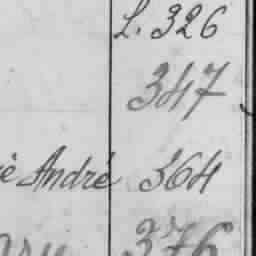 L. 326
347
André 364
376